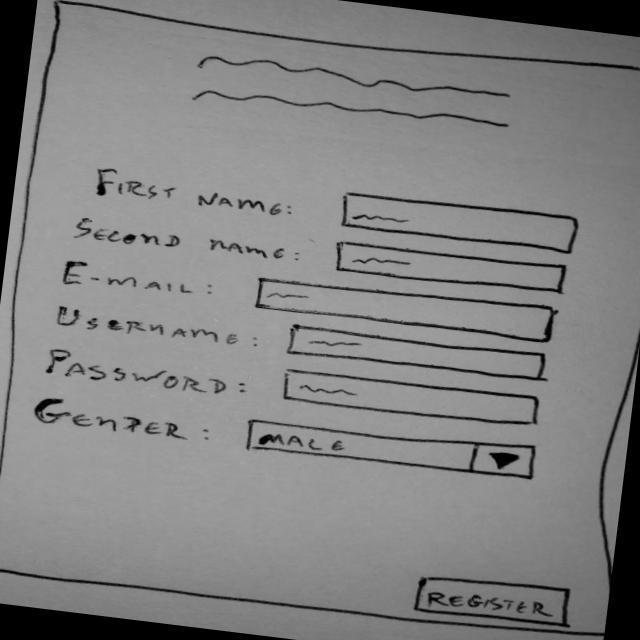 FIRST NAME:
SECOND NAME:
E-MAIL:
USERNAME:
PASSWORD:
GENDER:
MALE
REGISTER